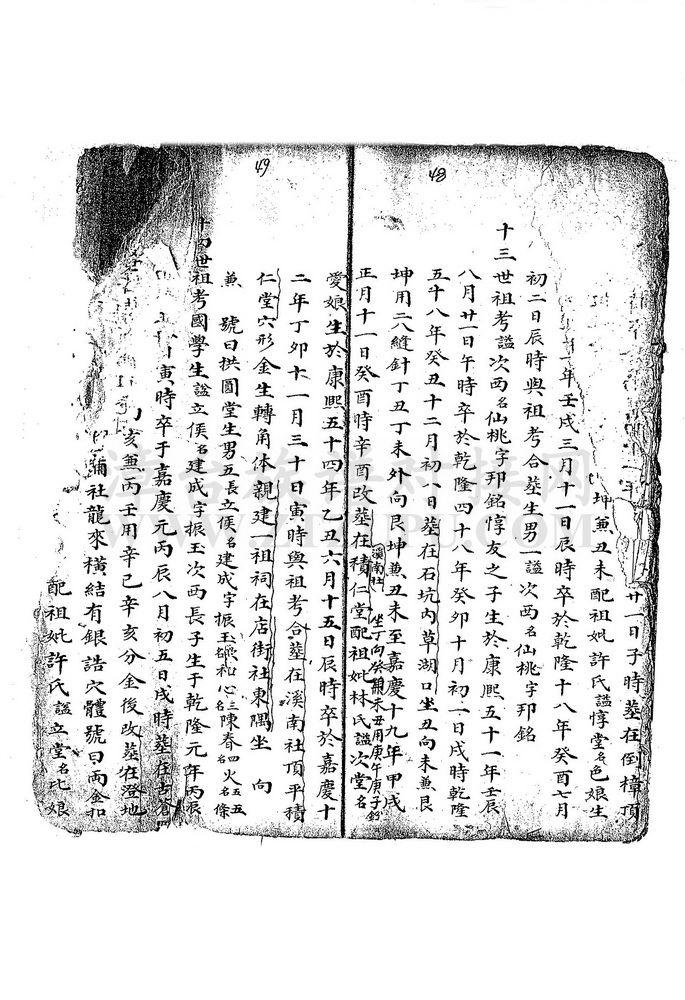 48
廿一日子時墓在倒樟頂
坤兼丑未配祖妣許氏謚惇堂名色娘生
年壬戌三月十一日辰時卒於乾隆十八年癸酉七月
初二日辰時與祖考合墓生男一謚次西名仙桃字玾銘
十三世祖考謚次西名仙桃字玾銘惇友之子生於康熙五十一年壬辰
八月廿一日午時卒於乾隆四十八年癸卯十月初一日戌時乾隆
五十八年癸丑十二月初八日墓在石坑內草湖口坐丑向未兼艮
坤用二八縫針丁丑丁未外向艮坤兼丑未至嘉慶十九年甲戌
正月十一日癸酉時辛酉改墓在溪南社積仁堂坐丁向癸兼未丑用庚午庚子分配祖妣林氏謚次堂名
49
愛娘生於康熙五十四年乙丑六月十五日辰時卒於嘉慶十
二年丁卯十一月三十日寅時與祖考合墓在溪南社頂平積
仁堂穴形金生轉角体親建一祖祠在店街社東隅坐 向
兼 號曰拱圓堂生男五長立侯名建成字振玉
十四世祖考國學生謚立侯名建成字振玉次西長子生于乾隆元年丙辰
寅時卒于嘉慶元丙辰八月初五日戌時墓在古倉
亥兼丙壬用辛巳辛亥分金後改墓在澄地
浦社龍來橫結有銀誥穴體號曰両金扣
配祖妣許氏謚立堂名